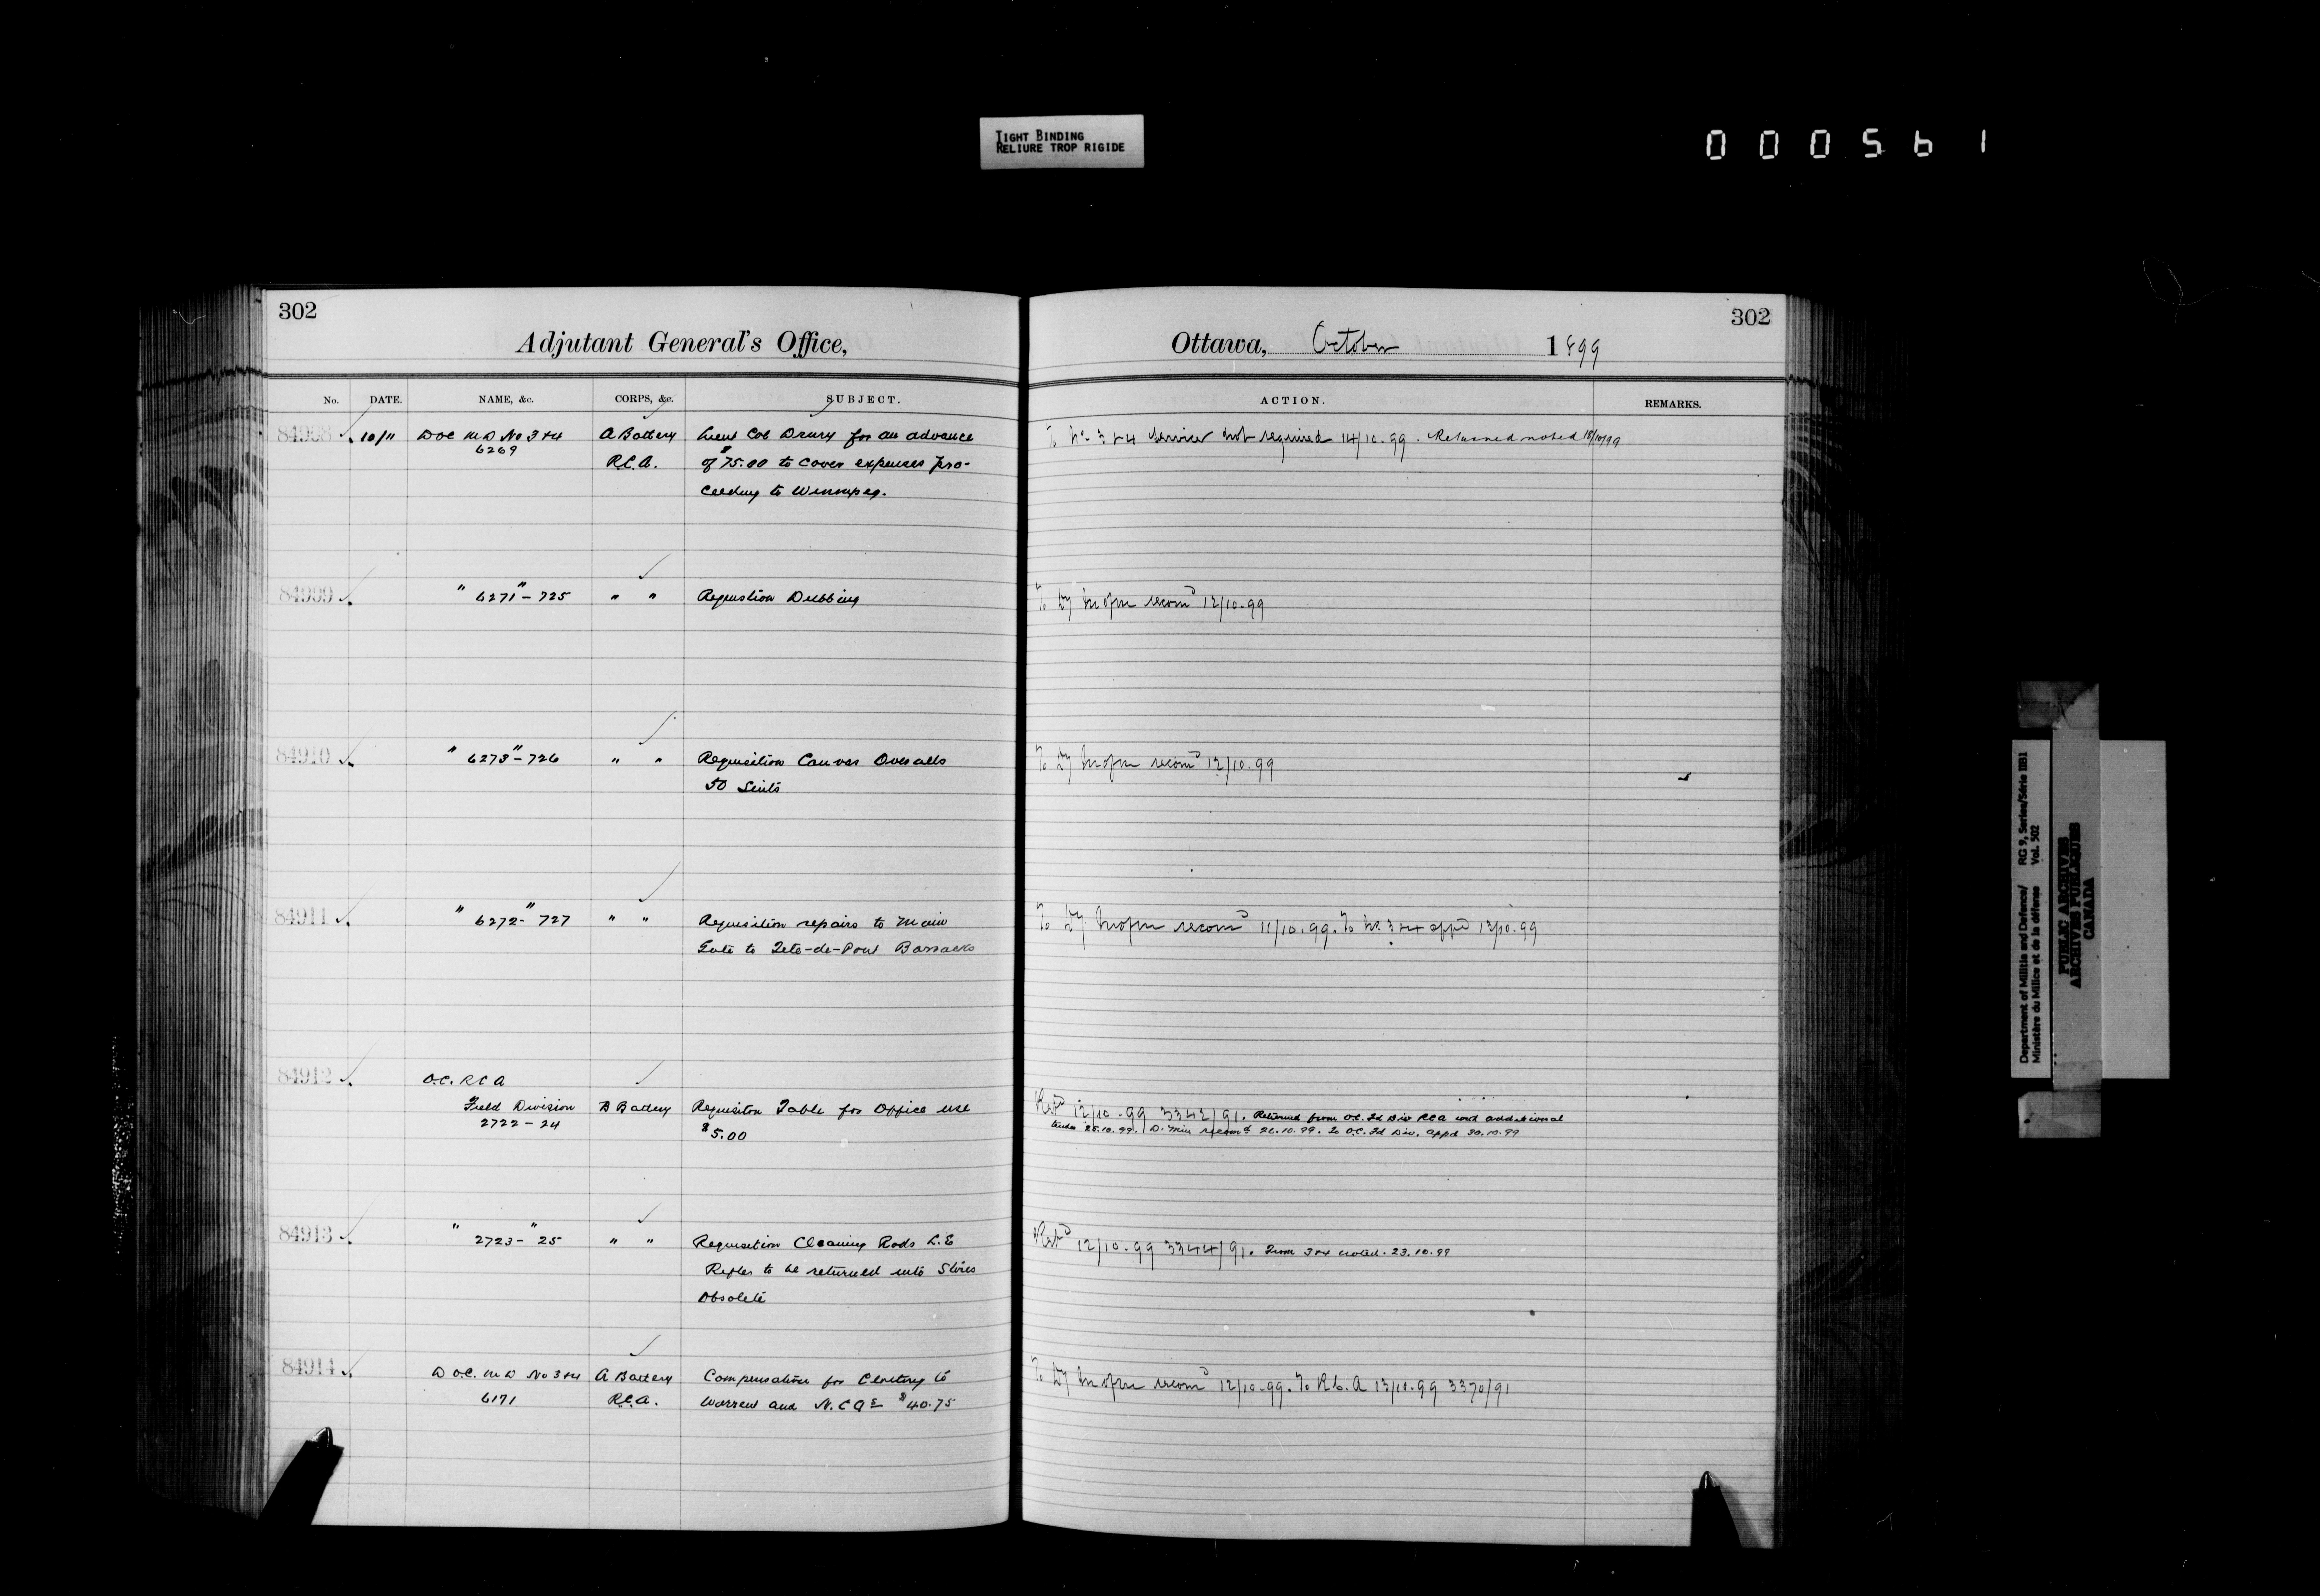 TIGHT BINDING
RELIURE TROP RIGIDE
000561
302
Adjutant General's Office,
No. DATE. NAME, &c. CORPS, &c. SUBJECT.
84908 10/11 DOC MD No 3+4 A Battery Lieut Col Drury for an advance
6269 R.C.A. of $75.00 to cover expenses pro-
ceeding to Winnipeg.
84909 " 6271 " - 725 " " Requistion Dubbing
84910 " 6273 " - 726 " " Requisition Canvas Overalls
50 Suits
84911 " 6272 - " 727 " " Requisition repairs to Main
Gate to Tete-de-Pont Barracks
84912 O.C. RCA
Field Division B Battery Requisiton Table for Office use
2722 - 24 $5.00
84913 " 2723 - " 25 " " Requisition Cleaning Rods L.E
Rifles to be returned into Stores
Obsolete
84914 D.O.C. M D No 3+4 A Battery Compensation for Clothing to
6171 R.C.A. Warren and N.C.Os $40.75
302
Ottawa, October 1899
ACTION. REMARKS.
To No. 3+4 service not required 14/10.99. Returned noted 18/10/99
To recomd 12/10.99
To recomd 12/10.99
To recomd 11/10.99. To No. 3+4 appd 13/10.99
Retd 12/10.99 3342/91. Returned from O.C. Fd Div RCA with additional
tender 25.10.99. D. Min recomd 26.10.99. To O.C. Fd Div. appd 30.10.99
Retd 12/10.99 3344/91. From 3+4 noted. 23.10.99
To recomd 12/10.99. To R.C.A 13/10.99 3370/91
Department of Militia and Defence/ RG 9, Series/Série IIB1
Ministère du Milice et de la défense Vol. 502
PUBLIC ARCHIVES
ARCHIVES PUBLIQUES
CANADA